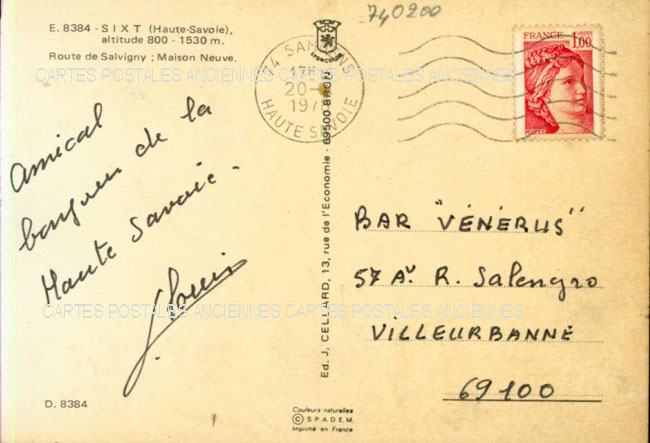 E. 8384 - SIXT (Haute-Savoie),
altitude 800 - 1530 m.
Route de Salvigny ; Maison Neuve.
740200
FRANCE 1,00
POSTES
20 -
197
HAUTE SAVOIE
CARTES POSTALES ANCIENNES CARTES POSTALES ANCIENNES
Amical
de la
Haute Savoie -
BAR "VÉNÉRUS"
57 Av R. Salengro
VILLEURBANNE
69100
CARTES POSTALES ANCIENNES CARTES POSTALES ANCIENNES
Ed. J. CELLARD, 13, rue de l'Economie - 69500 BRON
D. 8384
Couleurs naturelles
© S.P.A.D.E.M.
Imprimé en France